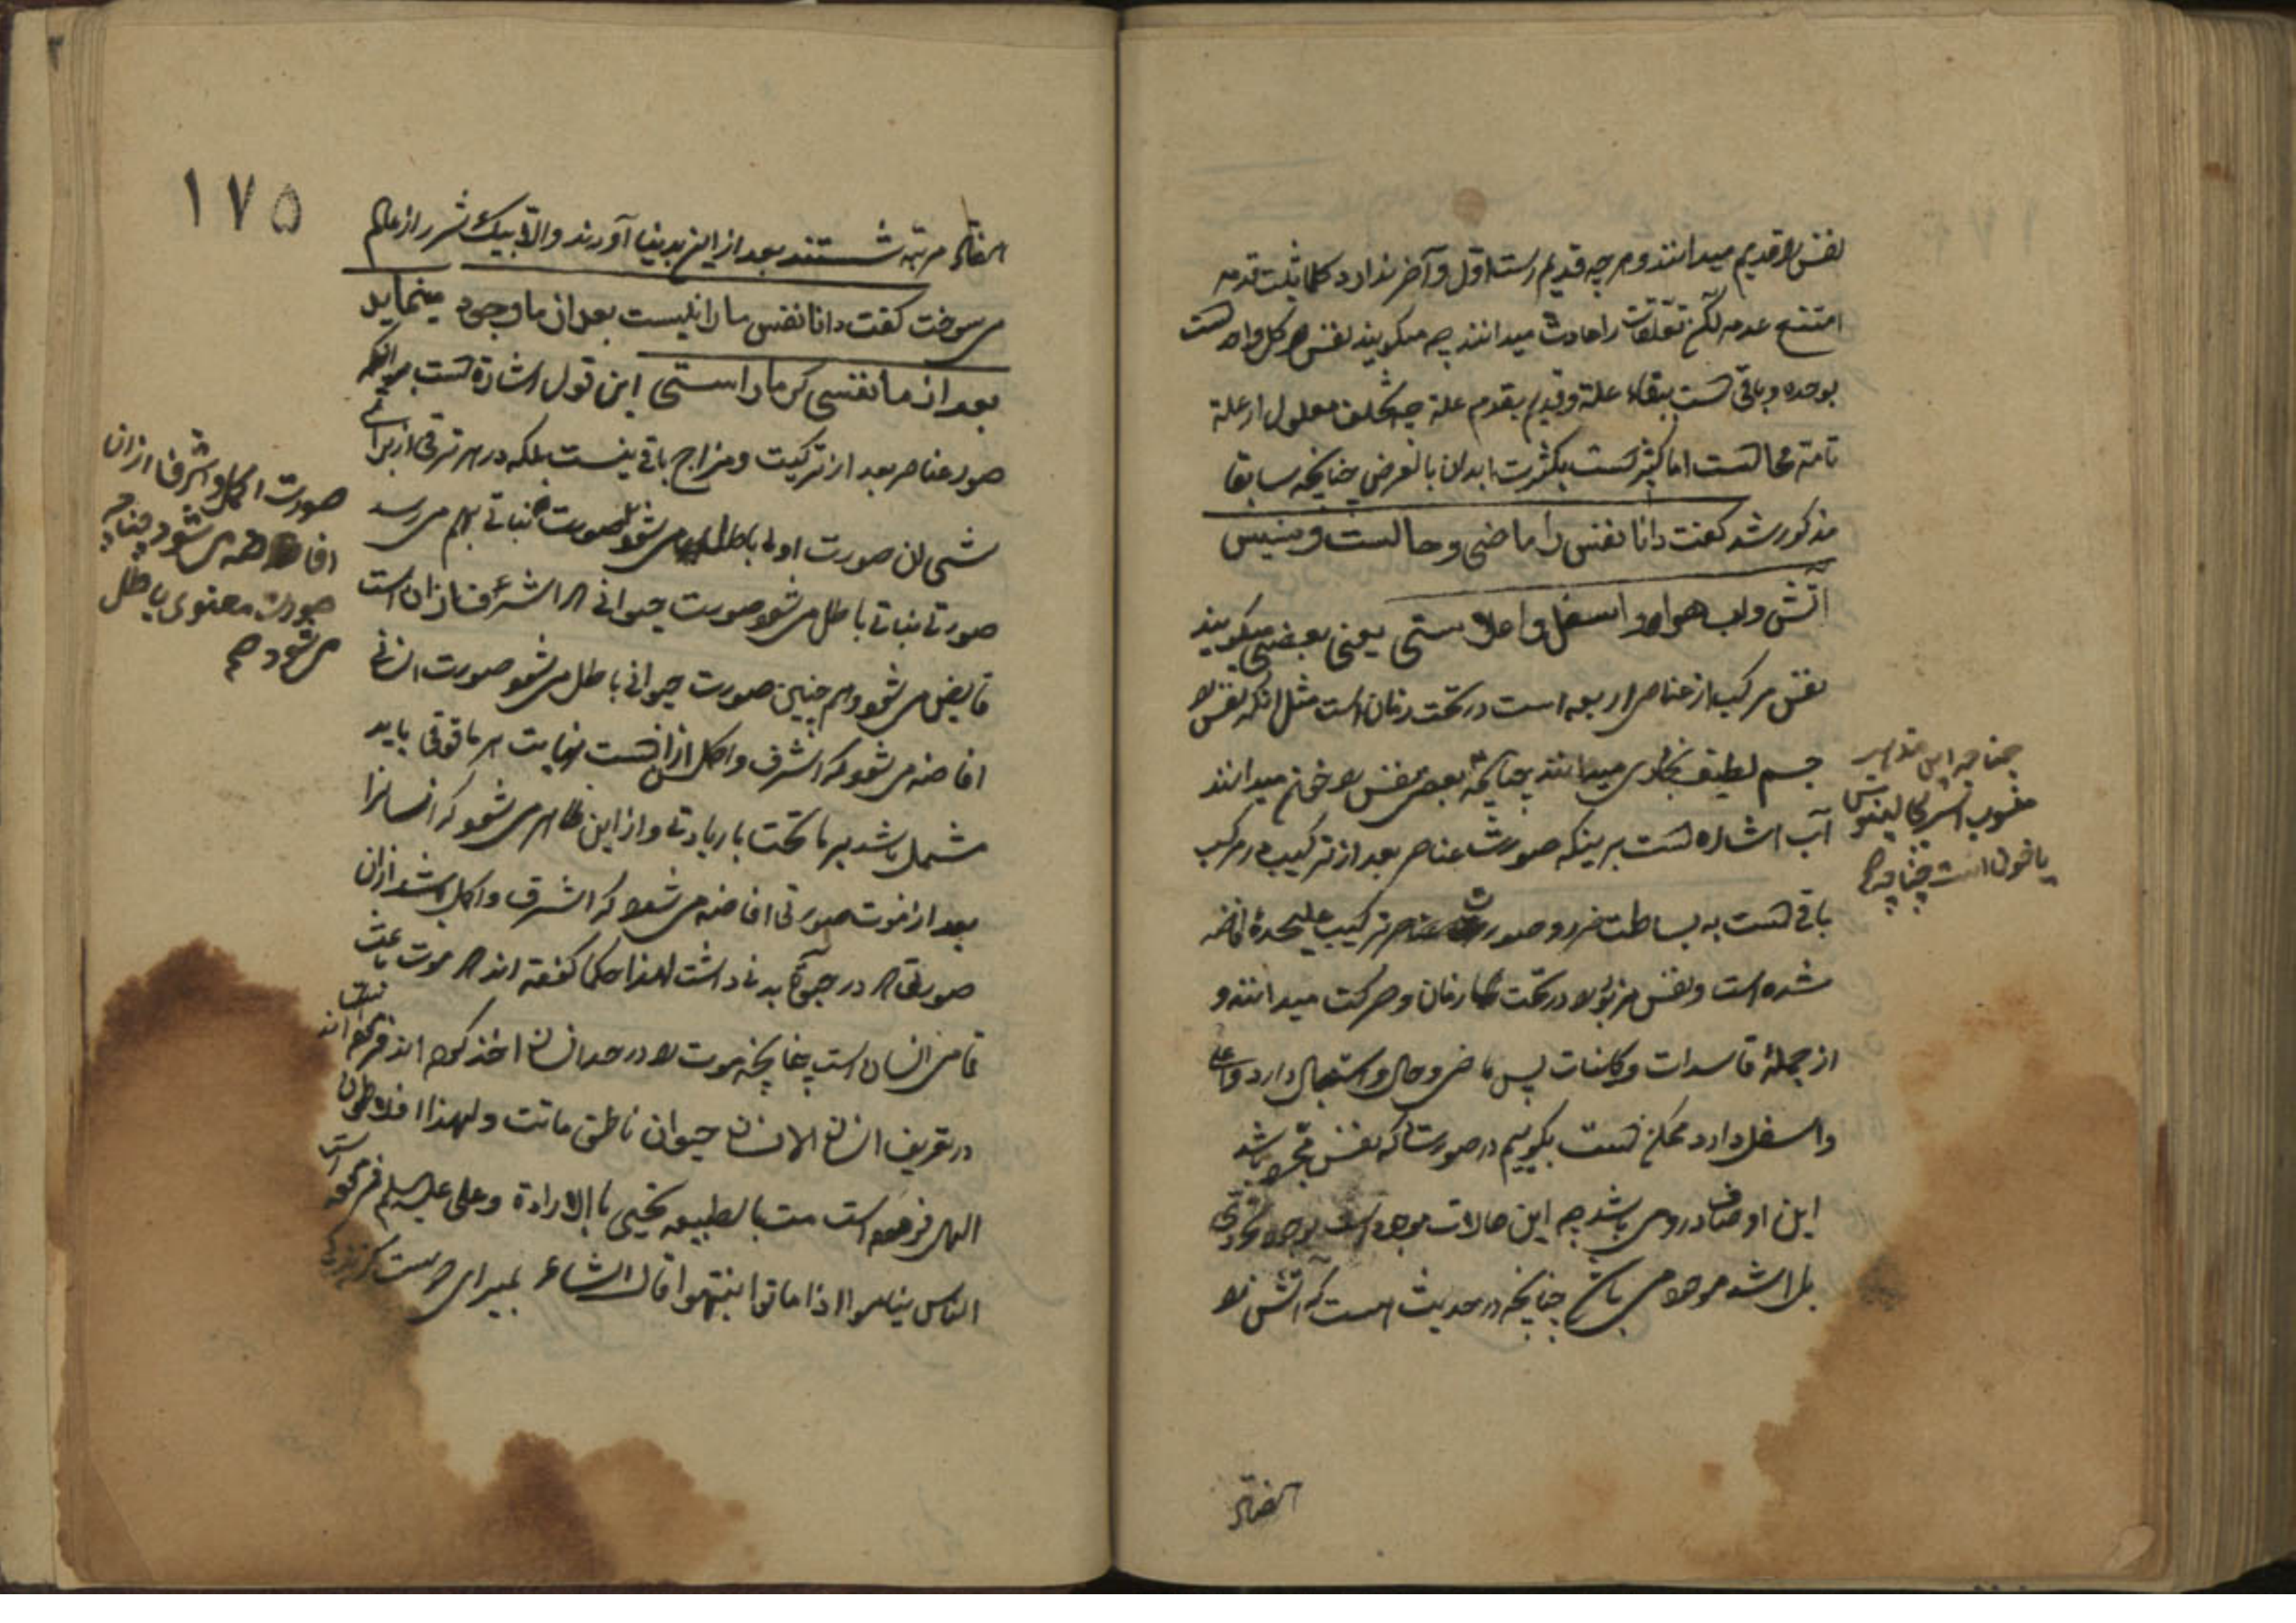 نفس را قدیم میدانند و هر چه قدیم است اول و آخر ندارد کلما ثبت قدمه
امتنع عدمه لکن تعلقات را حادث میدانند چه میگویند نفس هر کل واحد است
بوحده و باقی است ببقاء علة و قدیم بقدم علة چه تخلف معلول از علة
تامه محالست اما کثیر است بکثرت ابدان بالعرض چنانچه سابقا
مذکور شد گفت دانا نفس را ماضی و حالست و پیش
آتش و آب هوا و اسفل و اعلاستی یعنی بعضی میگویند
نفس مرکب از عناصر اربعه است در تحت زمان است مثل انکه نفس را
جسم لطیف بخاری میدانند چنانچه بعضی نفس را خون میدانند
آب اشاره است برینکه صورت عناصر بعد از ترکیب در مرکب
باقی است به بساطت خود و صورت ترکیب علیحده افاضه
شده است و نفس مزبور را در تحت زمان و حرکت میدانند و
از جملهٔ فاسدات و کاینات پس ماضی و حال و استقبال دارد و اعلی
و اسفل دارد ممکن است بگوییم در صورتیکه نفس مجرد باشد
این اوصاف در وی باشد چه این حالات موجود است بوجود تجردی
بل اشد موجود می باشد چنانچه در حدیث است که آتش را
چنانچه این مذهب
منسوب است بجالینوس
یا خون است چنانچه
هفتاد
۱۷۵
هفتاد مرتبه شستند بعد از این بدنیا آوردند و الا بیک شرر از عالم
می سوخت گفت دانا نفس ما را نیست بعد از ما وجود مینماید
بعد از ما نفسی که ما راستی این قول اشارة است بر انکه
صور عناصر بعد از ترکیب و مزاج باقی نیست بلکه در هر ترقی از برای
شی ان صورت اولی باطل می شود صورت نباتی بهم می رسد
صورتی نباتی باطل می شود صورت حیوانی که اشرف از ان است
فایض می شود و هم چنین صورت حیوانی باطل می شود صورت انسانی
افاضه می شود که اشرف و اکمل از انست نهایت هر مافوقی باید
مشتمل باشد بر ماتحت با زیادتی و از این ظاهر می شود که انسانرا
بعد از موت صورتی افاضه می شود که اشرف و اکمل باشد از ان
صورتی که در حیوة بدنی داشت لهذا حکما گفته اند که موت باعث
تمامی انسان است چنانچه موت را در حد انسان اخذ کرده اند فرموده اند
در تعریف انسان الانسان حیوان ناطق مائت و لهذا افلاطون
الهی فرموده است مت بالطبیعه تحیی بالارادة و علی علیه السلام فرموده است
الناس نیام اذا ماتوا انتبهوا قال الشاعر بمیر ای دوست
صورت اکمل و اشرف از ان
افاضه می شود چنانچه
صورت معنوی باطل
می شود